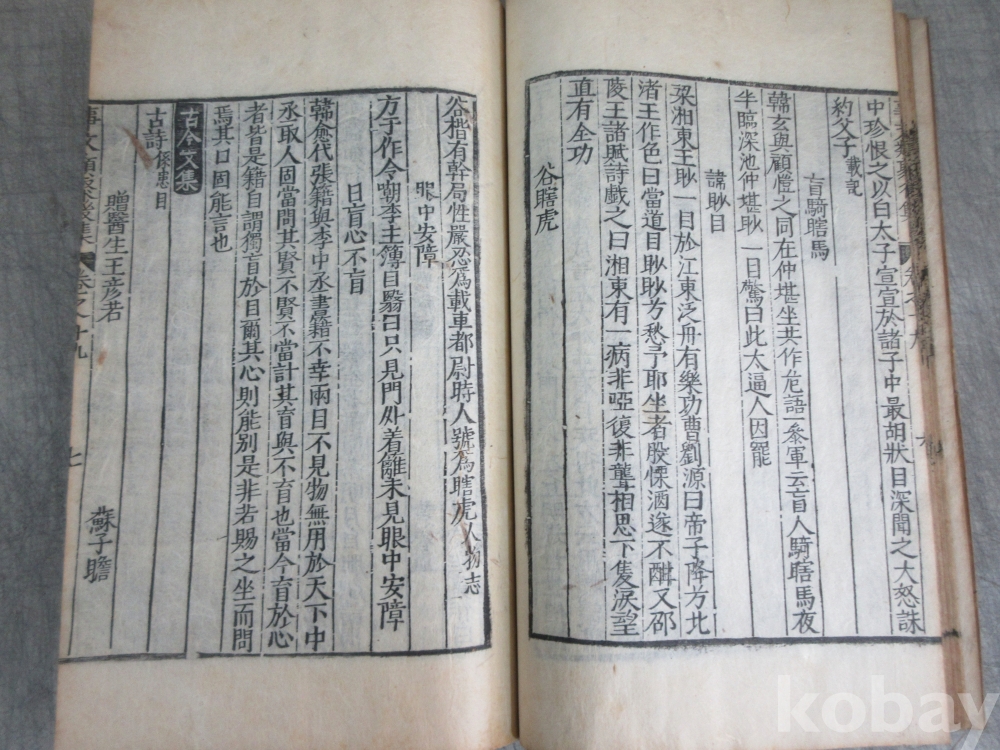 中珍恨之以白太子宣宣於諸子中最胡狀目深聞之大怒誅
約父子載記
盲騎瞎馬
韓玄與顧愷之同在仲堪坐共作危語一參軍云盲人騎瞎馬夜
半臨深池仲堪眇一目驚曰此太逼人因罷
諱眇目
梁湘東王眇一目於江東泛舟有樂功曹劉源曰帝子降方北
渚王作色曰當道目眇眇方愁予耶坐者股慄酒遂不酣又邵
陵王諸賦詩戲之曰湘東有一病非啞復非聾相思下隻淚望
直有全功
谷瞎虎
谷楷有幹局性嚴忍爲載車都尉時人號爲瞎虎人物志
眼中安障
方于作令嘲李主簿目翳曰只見門外着籬未見眼中安障
目盲心不盲
韓愈代張籍與李中丞書籍不幸兩目不見物無用於天下中
丞取人固當問其賢不賢不當計其盲與不盲也當今盲於心
者皆是籍自謂獨盲於目爾其心則能別是非若賜之坐而問
焉其口固能言也
古今文集
古詩係患目
贈醫生王彦若
蘇子瞻
事文類聚後集
卷之十九
七
kobay